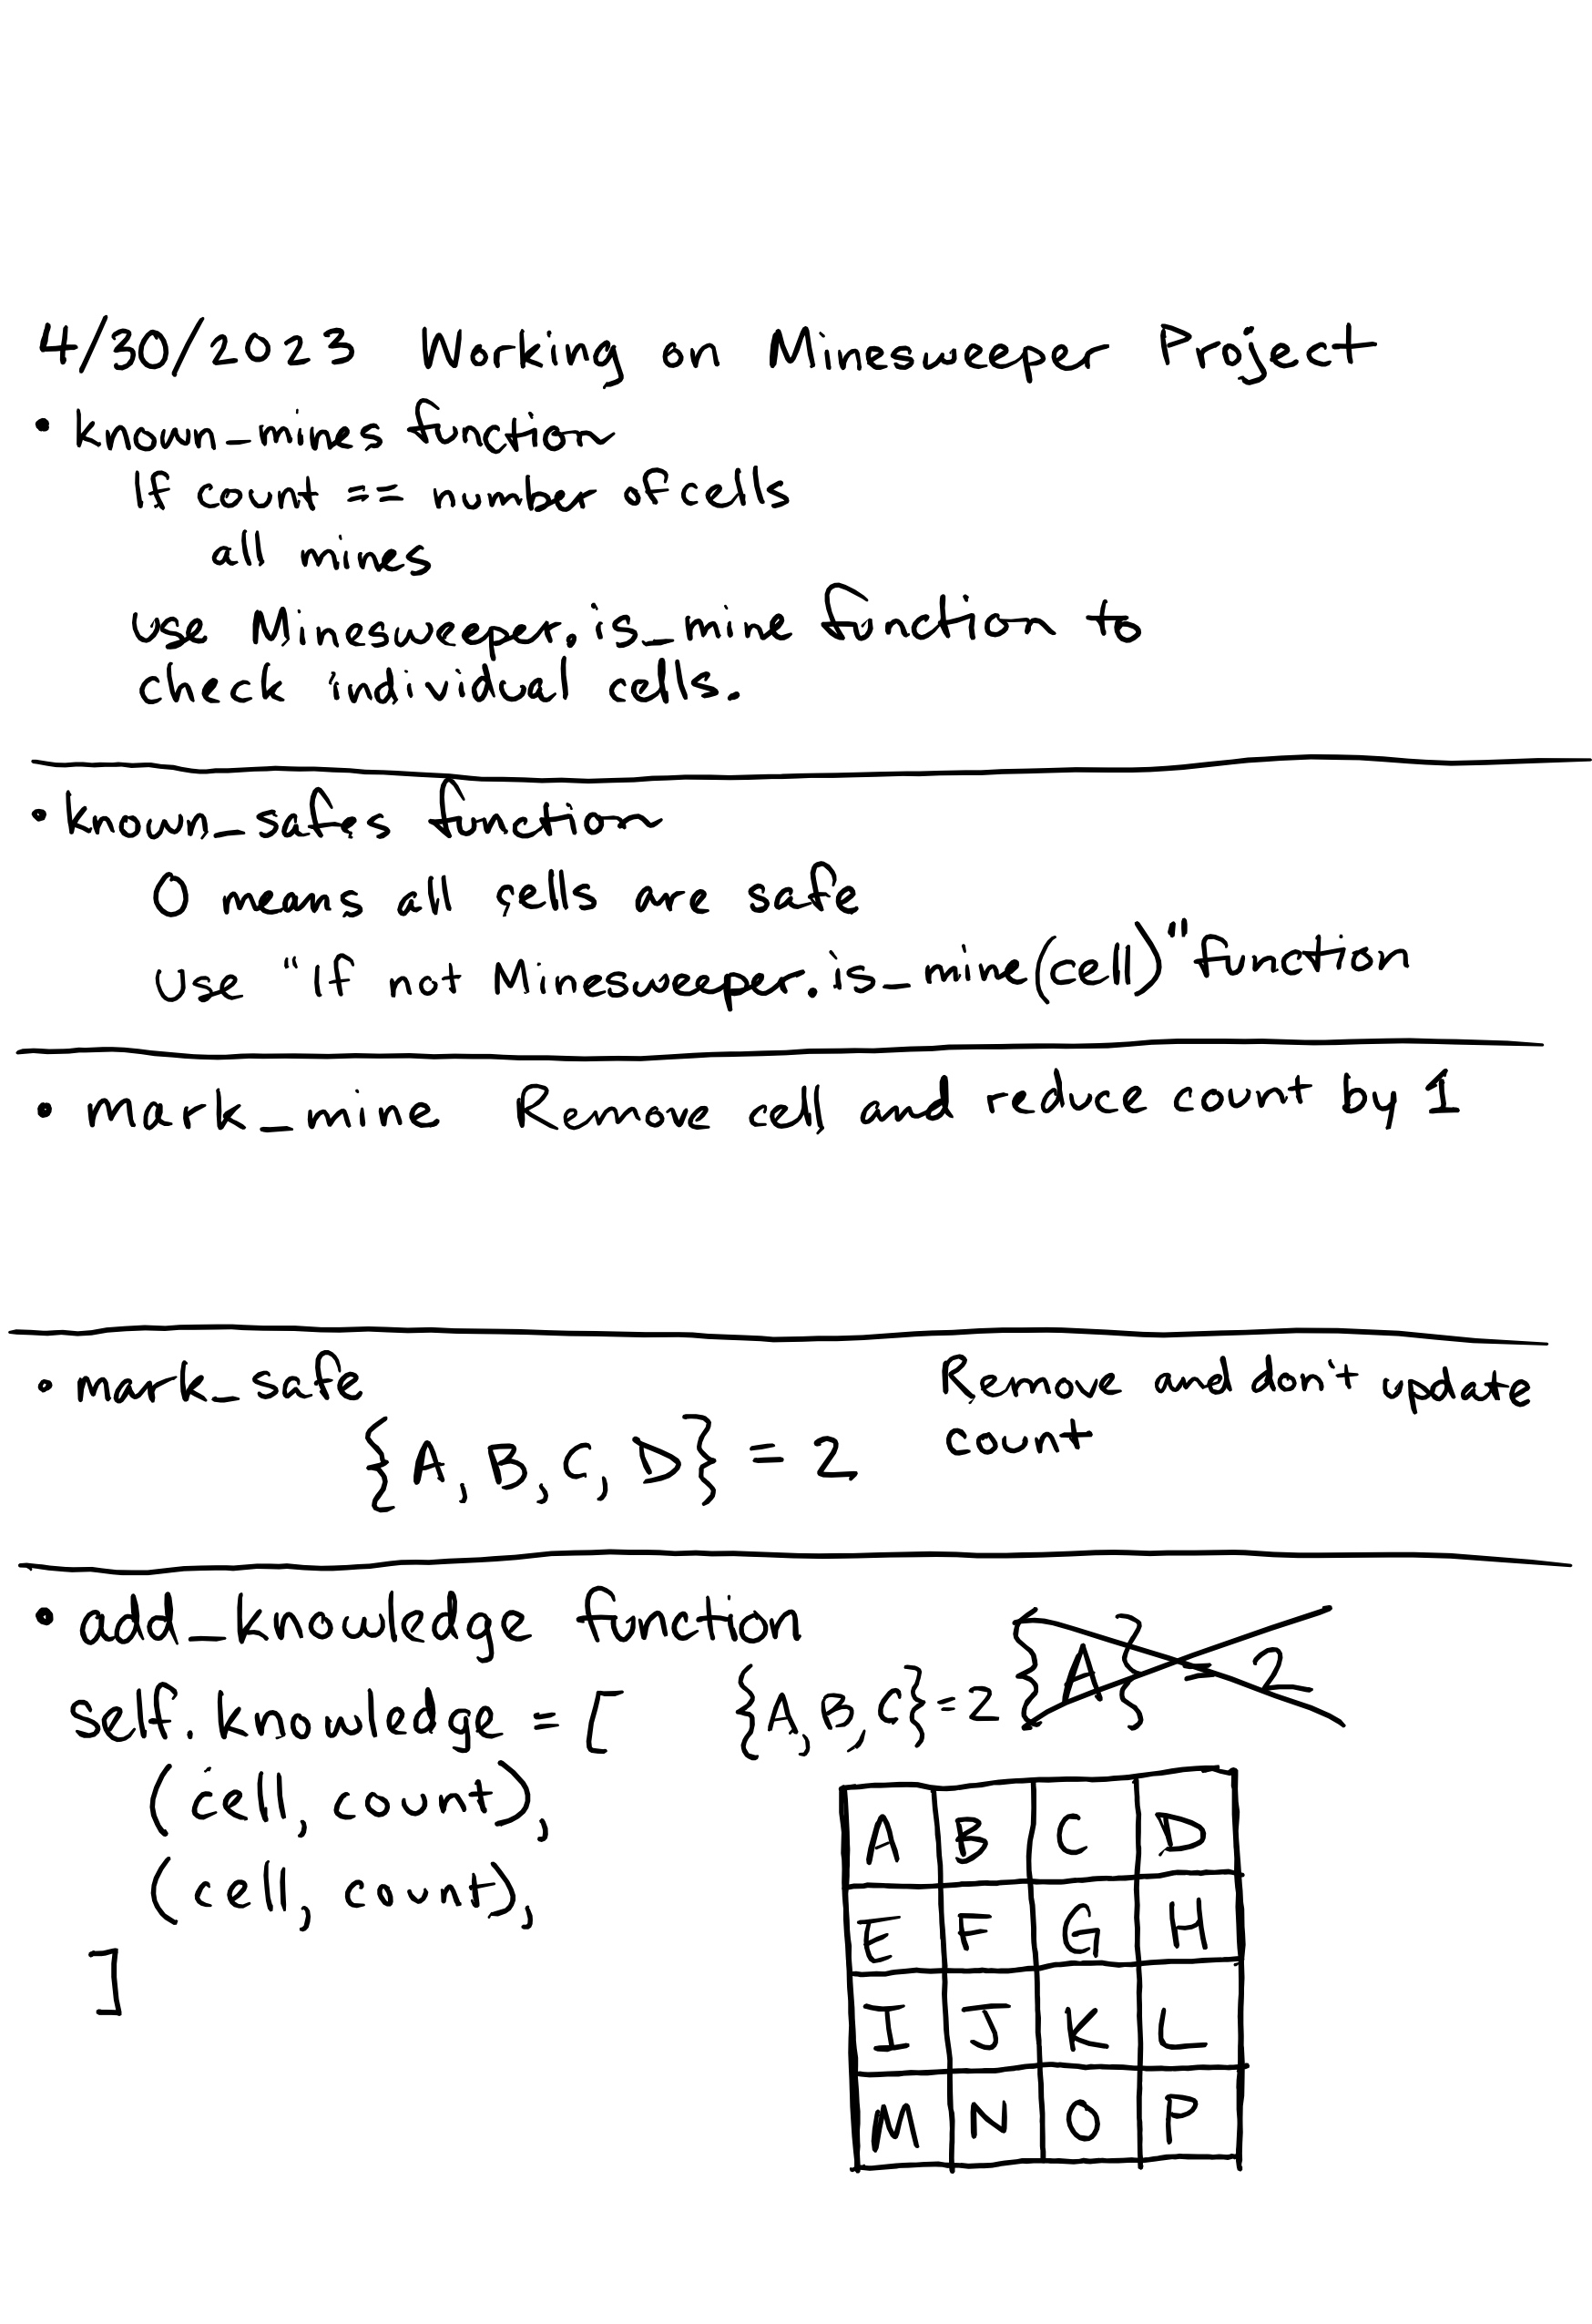 4/30/2023 Working on Minesweeper Project
• known_mines function
If count == number of cells
all mines
use Minesweeper.is_mine function to
check individual cells.
• known_safes function
0 means all cells are safe
use "If not Minesweeper.is_mine(cell)" function
• mark_mine Remove cell and reduce count by 1
• mark_safe
Remove and don't update
count
{A, B, C, D} = 2
• add_knowledge function
self.knowledge = [
(cell, count),
(cell, count),
]
{A, B, C} = 2 {A} = 2
A B C D
E F G H
I J K L
M N O P